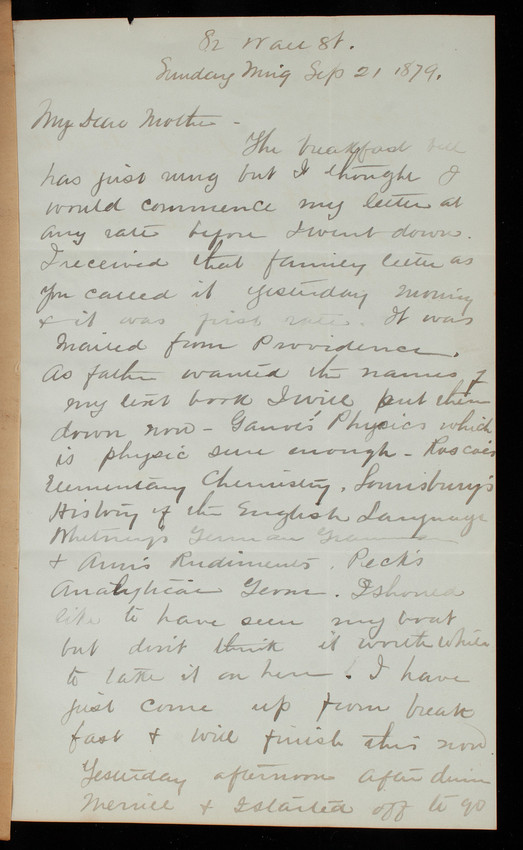 82 Wall St.
Sunday Mng Sep 21 1879.
My Dear Mother -
The breakfast bell
has just rung but I thought I
would commence my letter at
any rate before I went down.
I received that family letter as
you called it yesterday morning
& it was first rate. It was
mailed from Providence.
As father wanted the names of
my text book I will put them
down now - Ganot's Physics which
is physic sure enough - Roscoe's
Elementary Chemistry, Lounsbury's
History of the English Language
Whitney's German Grammar
& Rudiments. Peck's
Analytical Geom. I should
like to have seen my boat
but don't think it worth while
to take it on here. I have
just come up from break
fast & will finish this now.
Yesterday afternoon after dinner
Merrill & I started off to go